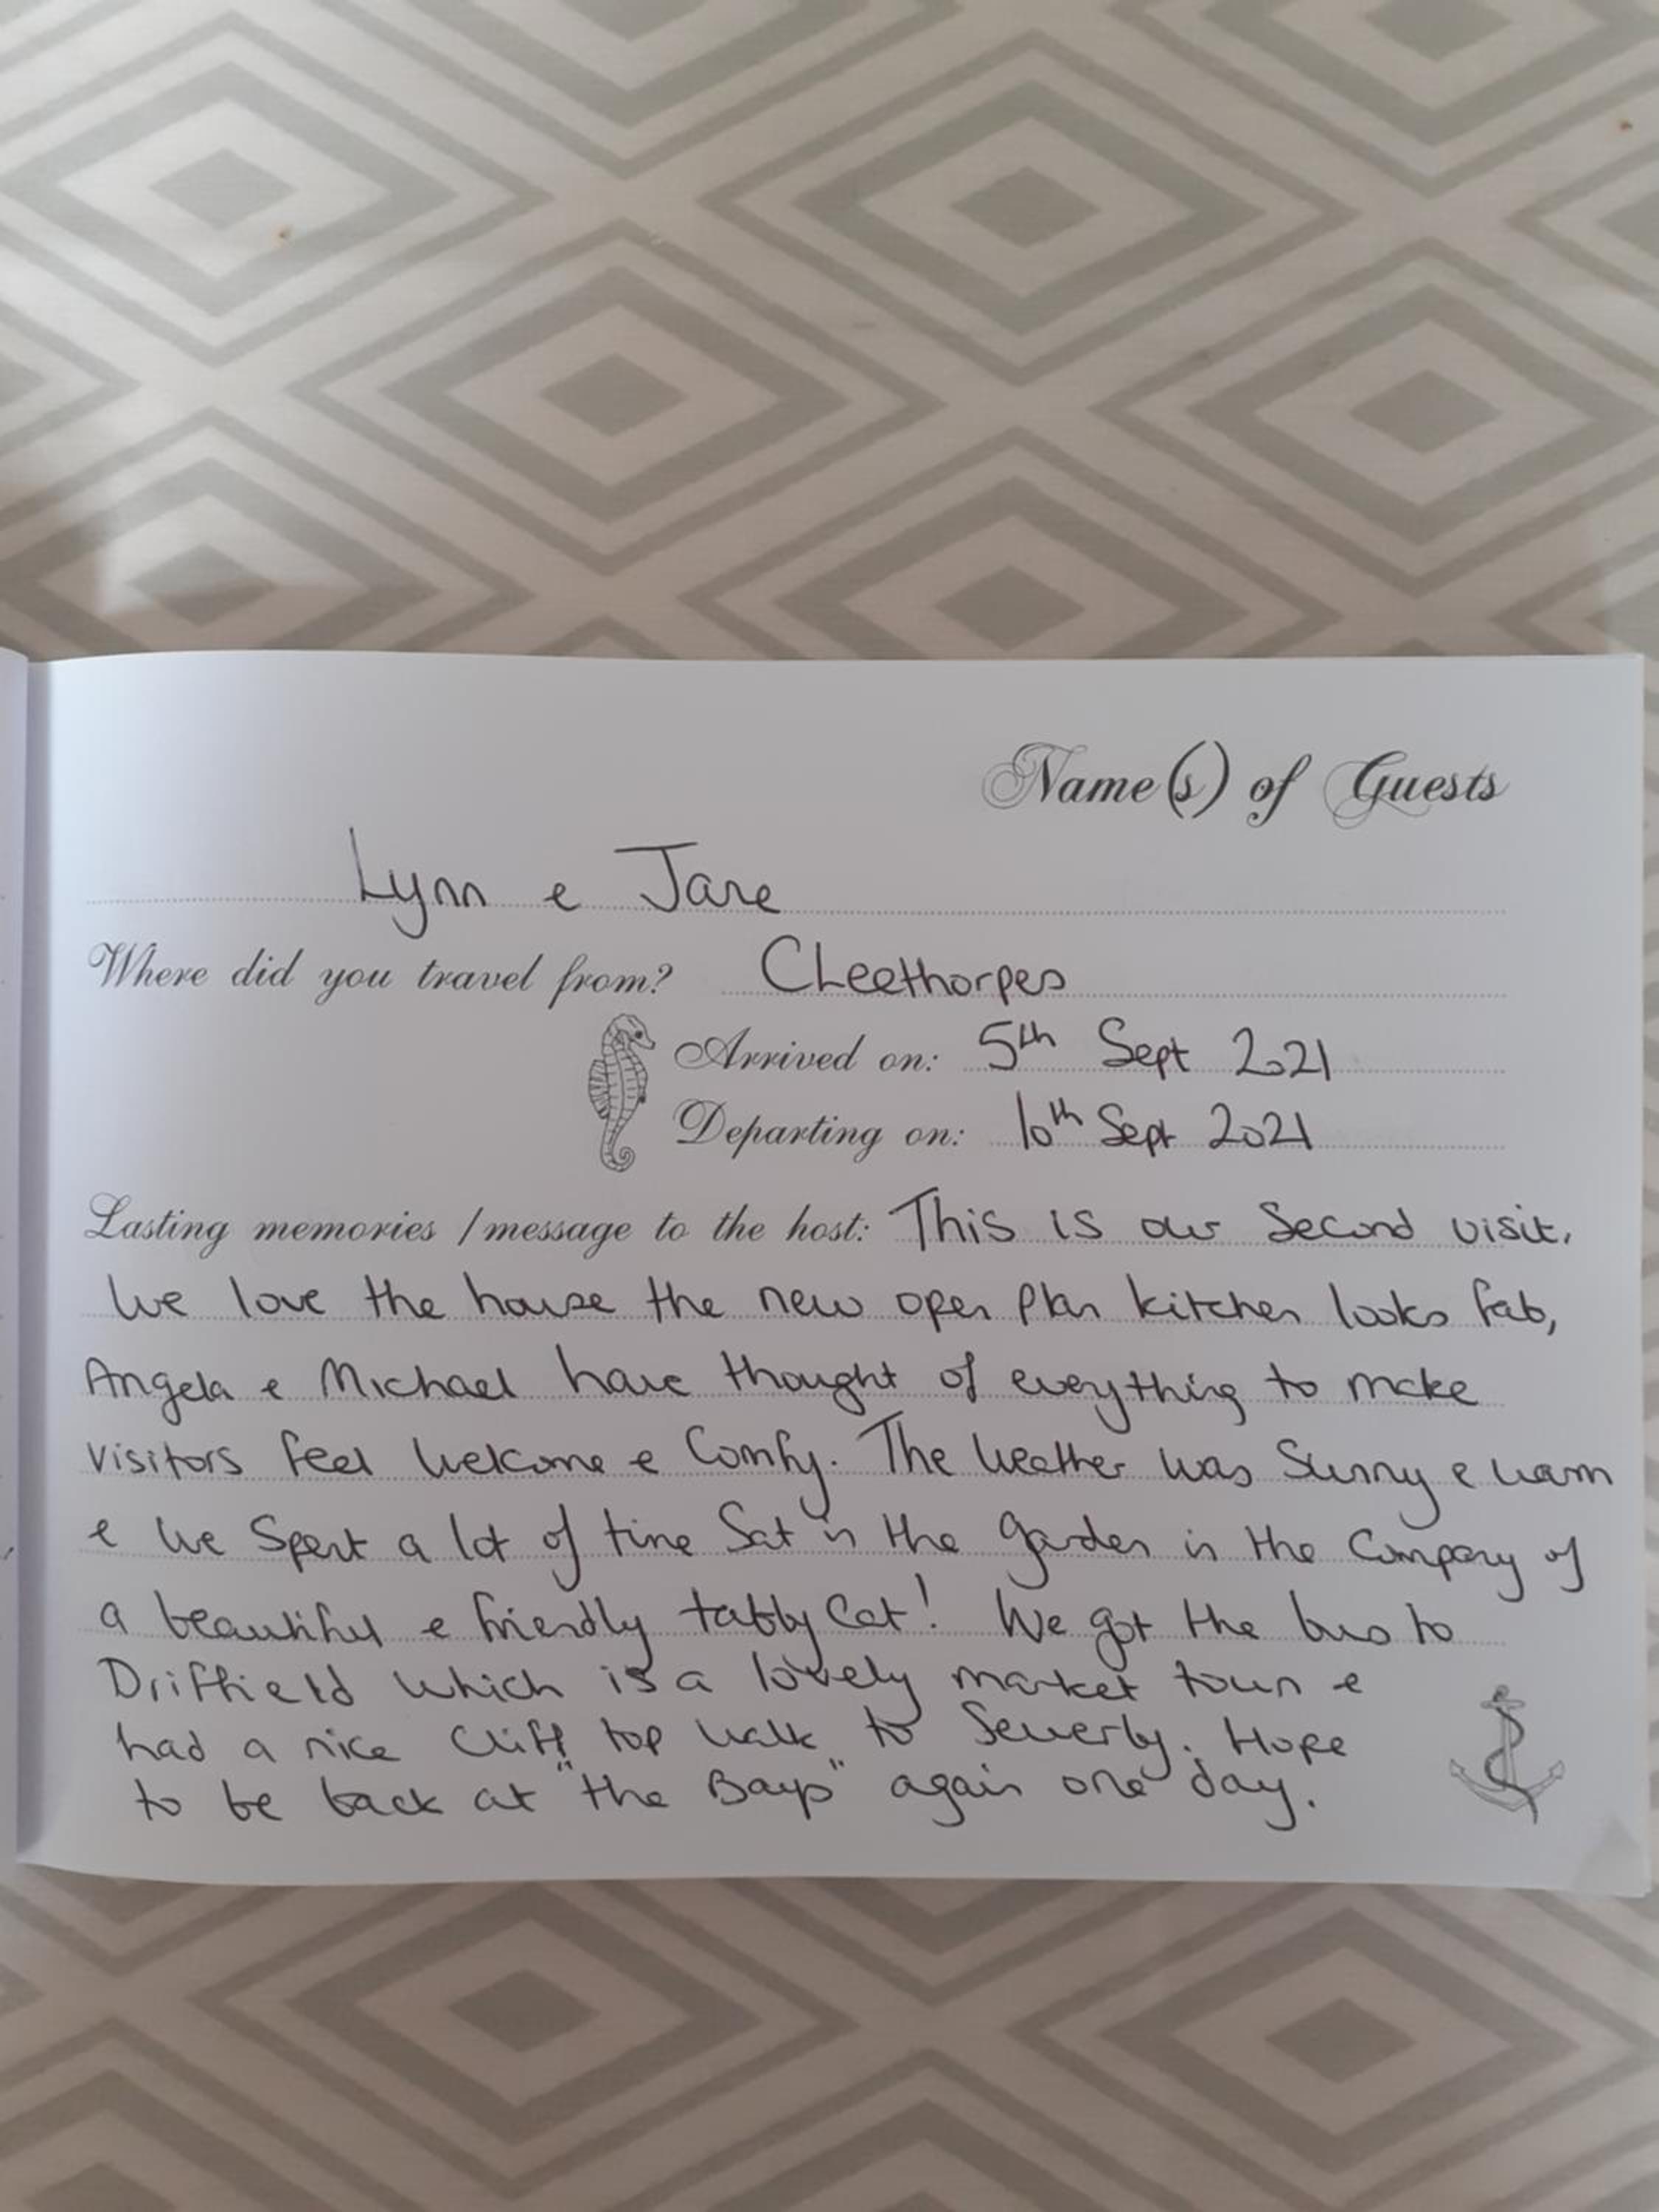 Name(s) of Guests
Lynn & Jane
Where did you travel from? Cleethorpes
Arrived on: 5th Sept 2021
Departing on: 10th Sept 2021
Lasting memories / message to the host: This is our Second visit.
We love the house the new open plan kitchen looks fab,
Angela & Michael have thought of everything to make
visitors feel welcome & Comfy. The weather was Sunny & warm
& we Spent a lot of time Sat in the garden in the Company of
a beautiful & friendly tabby Cat! We got the bus to
Driffield which is a lovely market town & 
had a nice Cliff top walk to Sewerby. Hope
to be back at "the Bays" again one day.